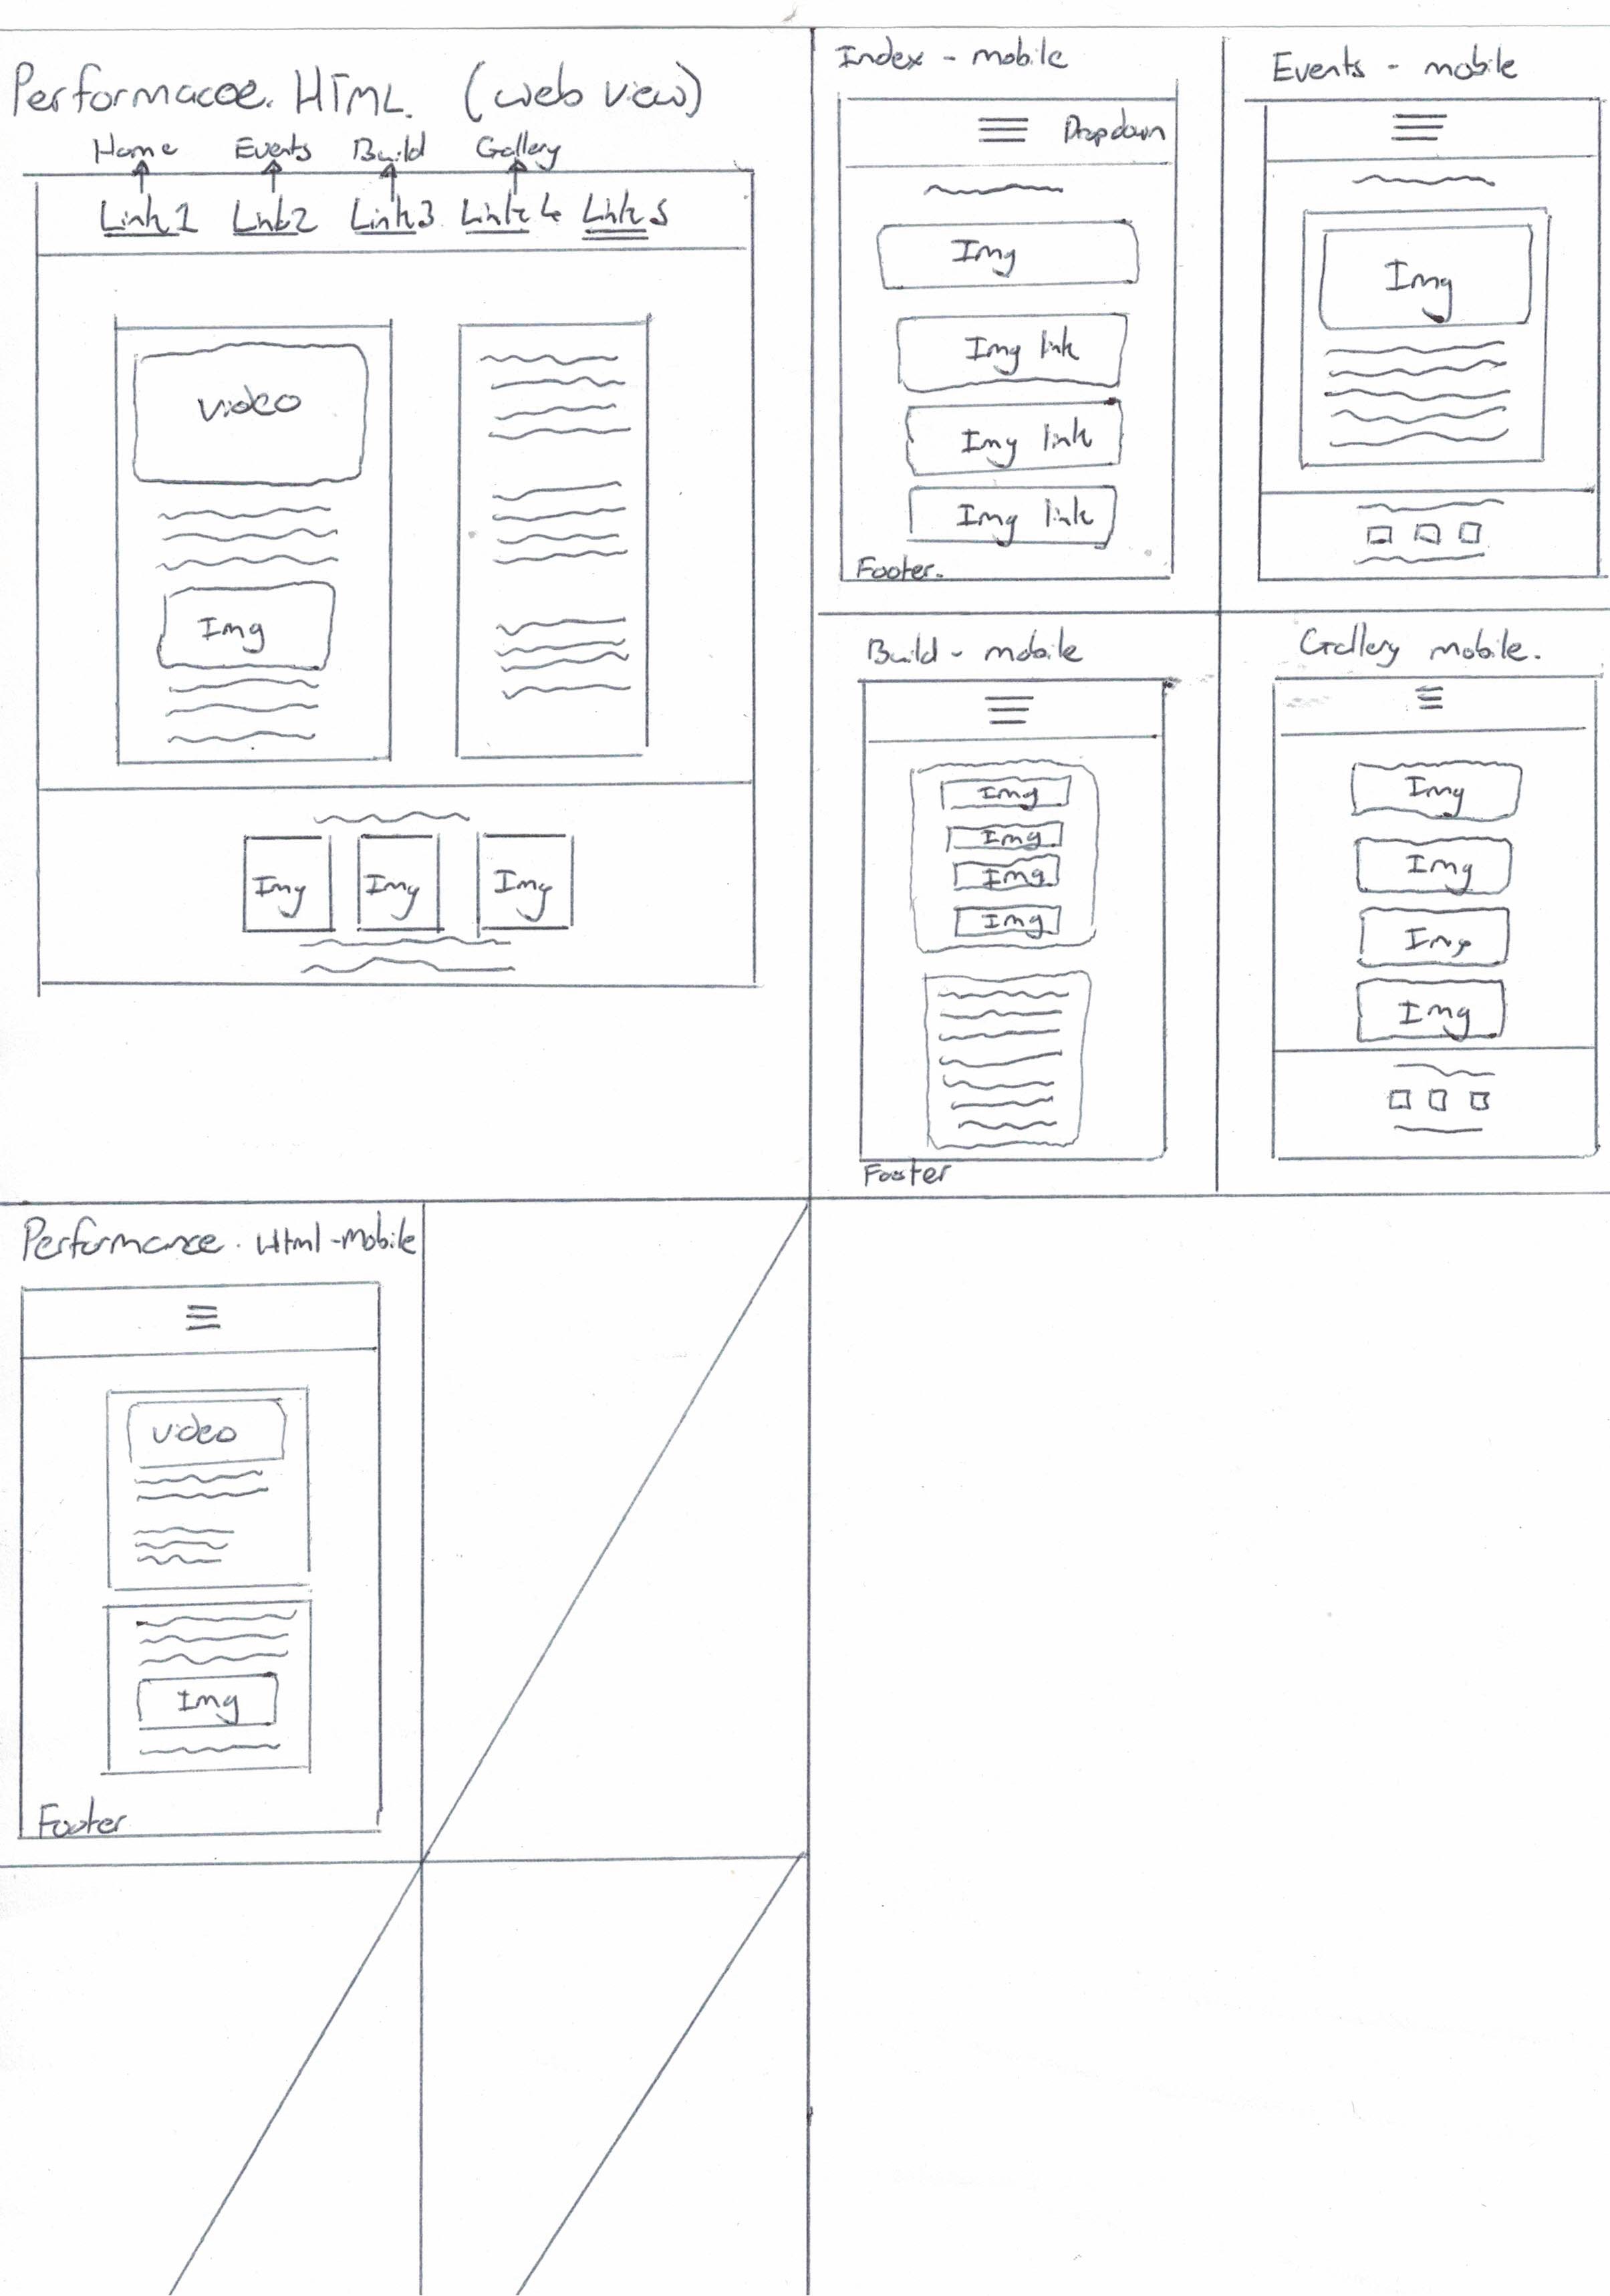 Performacoe. HTML. (web view)
Home Events Build Gallery
Link1 Link2 Link3 Link4 Link5
video
Img
Img Img Img
Index - mobile
Dropdown
Img
Img link
Img link
Img link
Footer.
Events - mobile
Img
Build - mobile
Img
Img
Img
Img
Footer
Gallery mobile.
Img
Img
Img
Img
Performance. Html-Mobile
video
Img
Footer